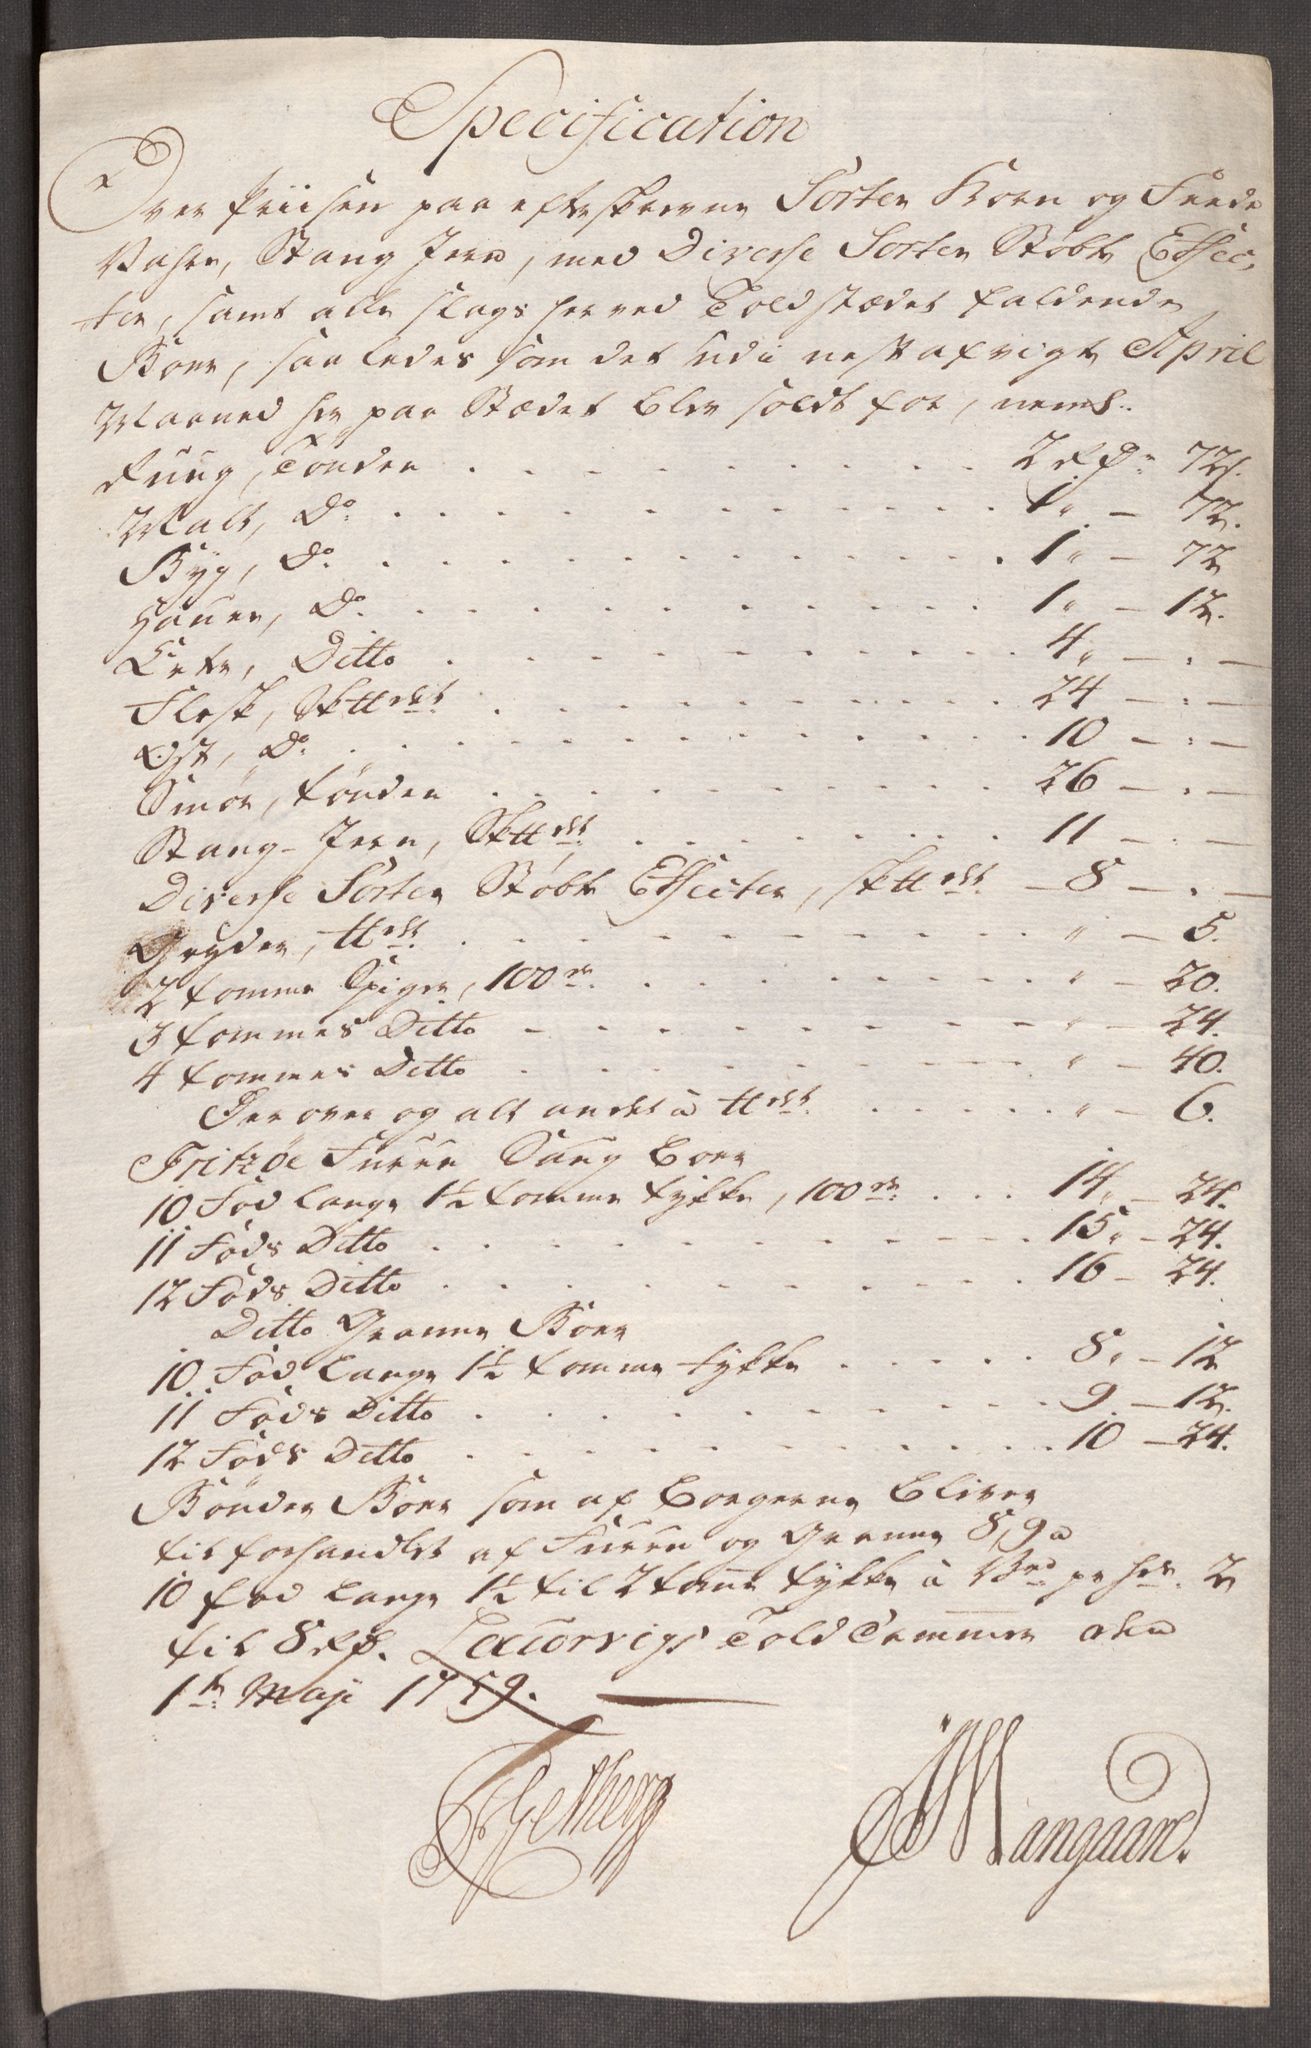 Specification
Over Priisen paa efterskrevne Sorter Korn og Feede
Vahre, Stang Jern, med Diverse Sorter Støbte Effec,
ter, samt alle slags her ved Toldstædet faldende
Borr, saaledes som det udi nestafvigte April
Maaned her paa Stædet blev soldt for, neml:
Rug, Tönden . . . 2 Rdr 72 s.
Malt, Do. . . . 1 „ — 72.
Byg, Do. . . . 1 „ — 72
Hauer, Do. . . . 1 „ — 12.
Erter, Ditto . . . 4 „ — : —
Flesk, Sk℔det . . . 24 — : —
Ost, Do. . . . 10 — : —
Smör, tönden . . . 26 — . —
Stang-Jern, Sk℔det . . . 11 — . —
Diverse Sorter Støbte Effecter, sk℔det — 8 — . —
Gryder, ℔det . . . „ — 5.
2 tomme Spiger, 100de . . . „ — 20.
3 tommes Ditto — . . . „ — 24.
4 tommes Ditto . . . „ — 40.
Der over og alt andet a ℔det . . . „ — 6.
Fritzöe Furre Saug Borr
10 Fod lange 1½ tomme tykke, 100de . . . 14 „ — 24.
11 Fods Ditto . . . 15 „ — 24.
12 Fods Ditto . . . 16 — 24.
Ditto Granne Borr
10 Fod lange 1½ tomme tykke . . . 8 „ — 12
11 Fods Ditto . . . 9. — 12.
12 Fods Ditto . . . 10 — 24.
Bönder Borr som af Borgerne bliver
tilforhandlet af Furre og Granne 8, 9 a
10 fod lange 1½ til 2 tomme tykke a pr 2
til 8 Rdr. Laurvigs Told Cammer den
1te Maji 1759.
Getberg
Mangaard.